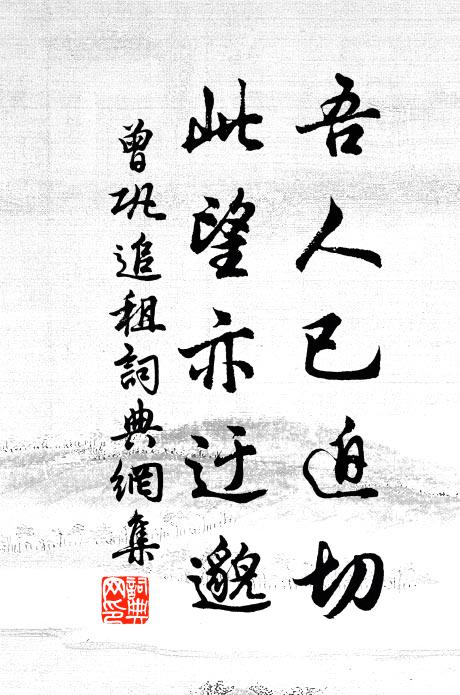 吾人已迫切
此望亦迂邈
曾巩追租詞典網集
詞典網印